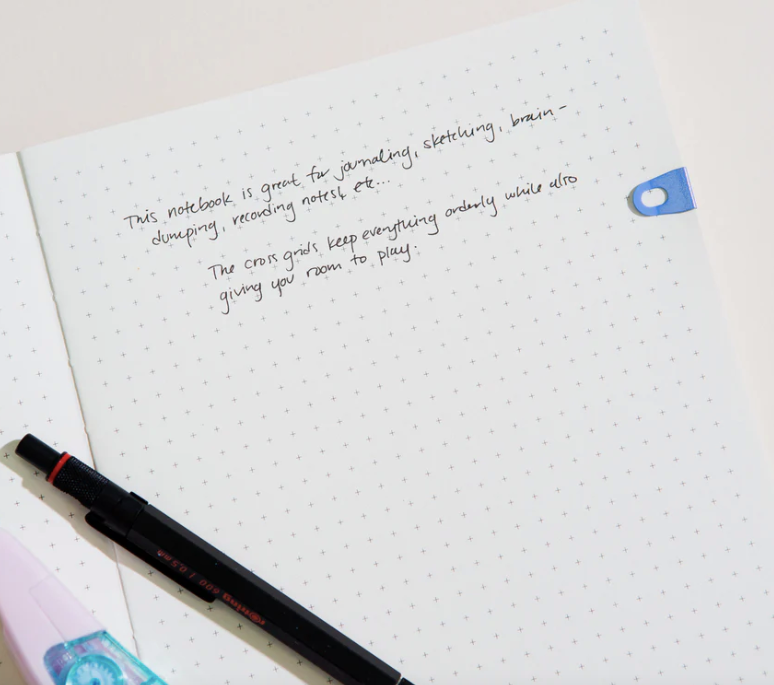 This notebook is great for journaling, sketching, brain-
dumping, recording notes, etc...
The cross grids keep everything orderly while also
giving you room to play.
rotring 600 / 0.5